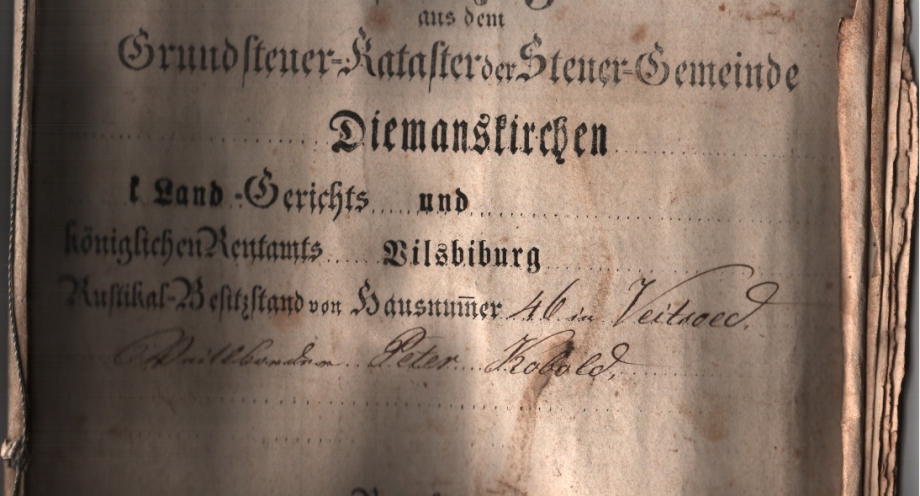 aus dem
Grundsteuer-Kataster der Steuer-Gemeinde
Diemanskirchen
k Land-Gerichts und
königlichen Rentamts Vilsbiburg
Rustikal-Besitzstand von Hausnum̅er 46 in Veitsoed.
Peter Kobold,